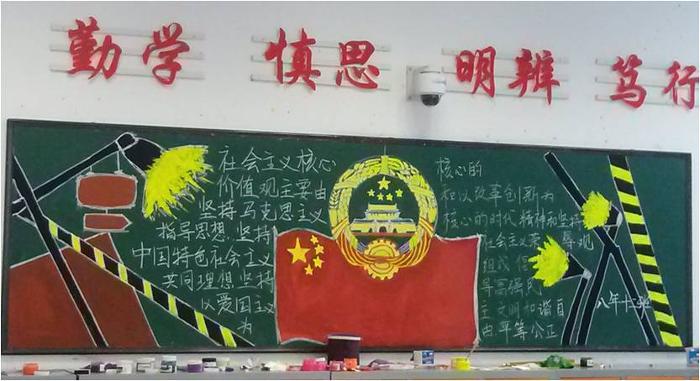 勤学 慎思 明辨 笃行
社会主义核心
价值观主要由
坚持马克思主义
指导思想、坚持
中国特色社会主义
共同理想坚持
以爱国主义
为
核心的
和以改革创新为
核心的时代精神和坚持
社会主义荣 辱观
组成 倡
导富强民
主 文明和谐自
由平等公正
八年十二班